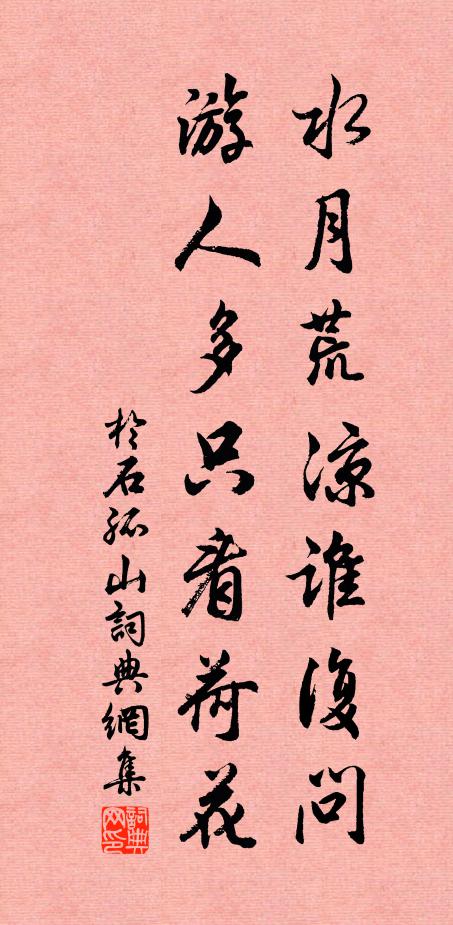 水月荒凉誰復問
游人多只看荷花
於石孤山詞典網集
詞典网印